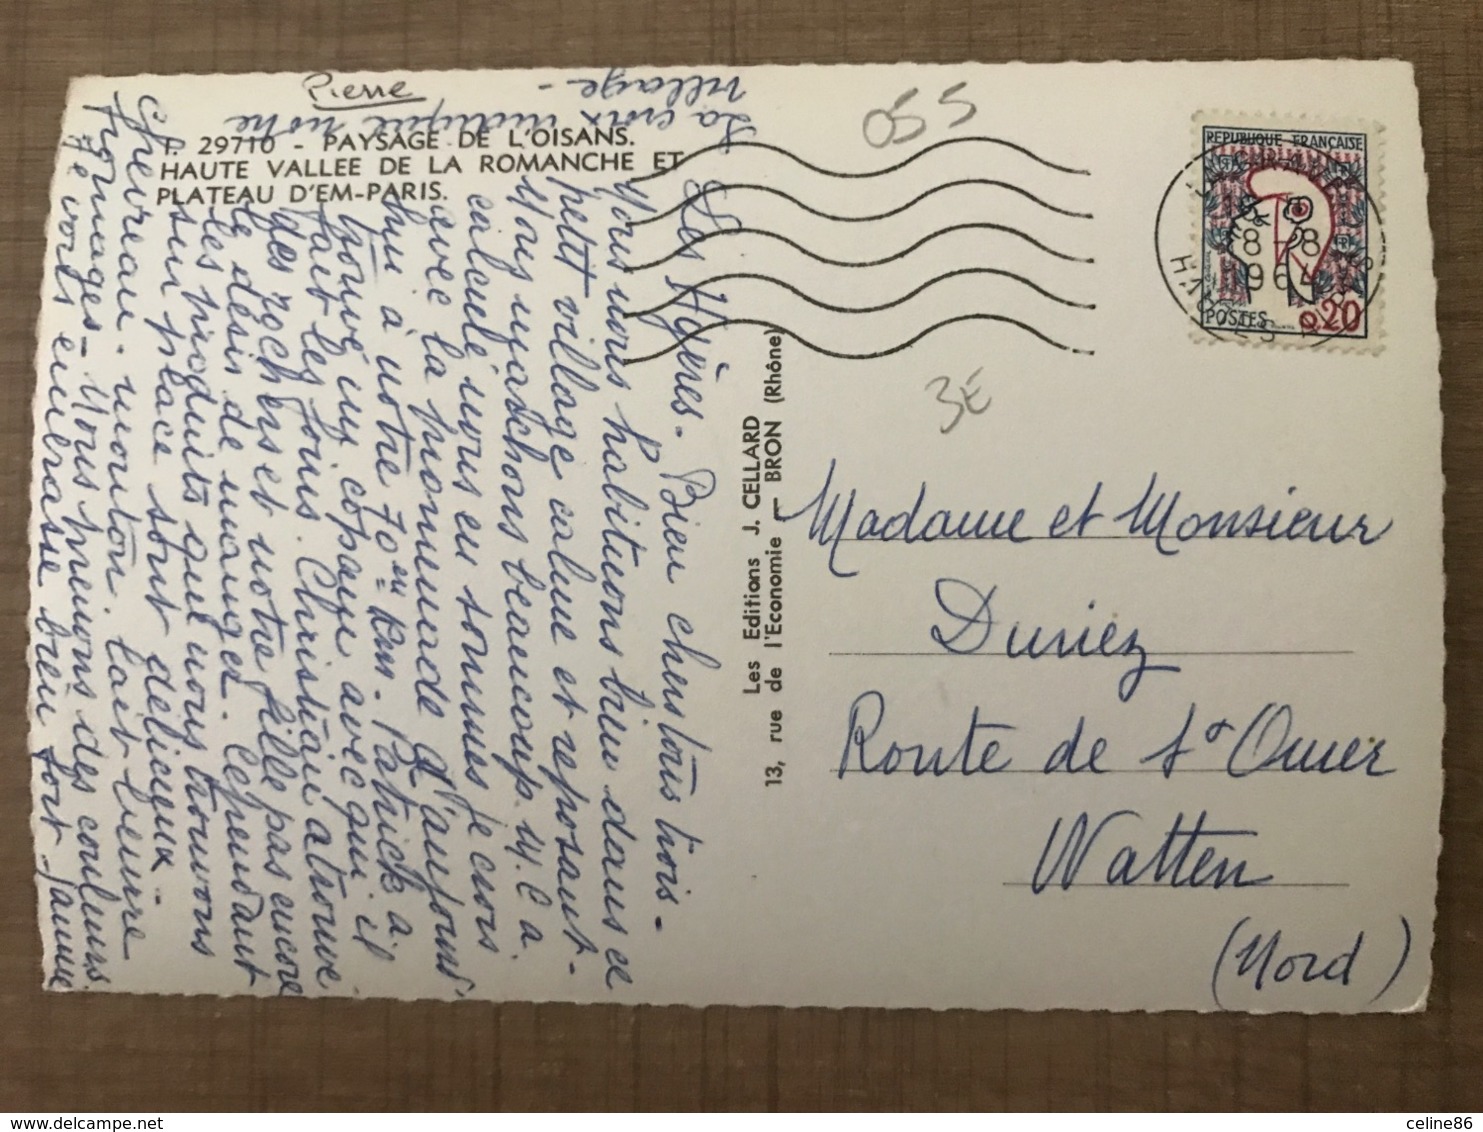 Pierre
La croix indique notre
village -
P. 29710 - PAYSAGE DE L'OISANS.
HAUTE VALLEE DE LA ROMANCHE ET
PLATEAU D'EM-PARIS.
Les Hyères. Bien chers tous trois -
Nous nous habituons bien dans ce
petit village calme et reposant -
Nous marchons beaucoup. M. C a
calculé nous en sommes je crois
avec la promenade d'aujourd'
hui à notre 70en Km. Patrick a
trouvé un copain avec qui il
fait les fous. Christian a trouvé
des rochers et notre fille pas encore
le désir de manger. Cependant
les produits que nous trouvons
sur place sont délicieux -
Chevreau. mouton. lait beurre
fromages - Nous prenons des couleurs.
Je vous embrasse bien fort - Jeanne
Les Editions J. CELLARD
13, rue de l'Economie - BRON (Rhône)
055
3E
REPUBLIQUE FRANÇAISE
POSTES
0,20
LA GRAVE
8 - 8
1964
HAUTES ALPES
Madame et Monsieur
Duriez
Route de St Omer
Watten
(Nord)
celine86